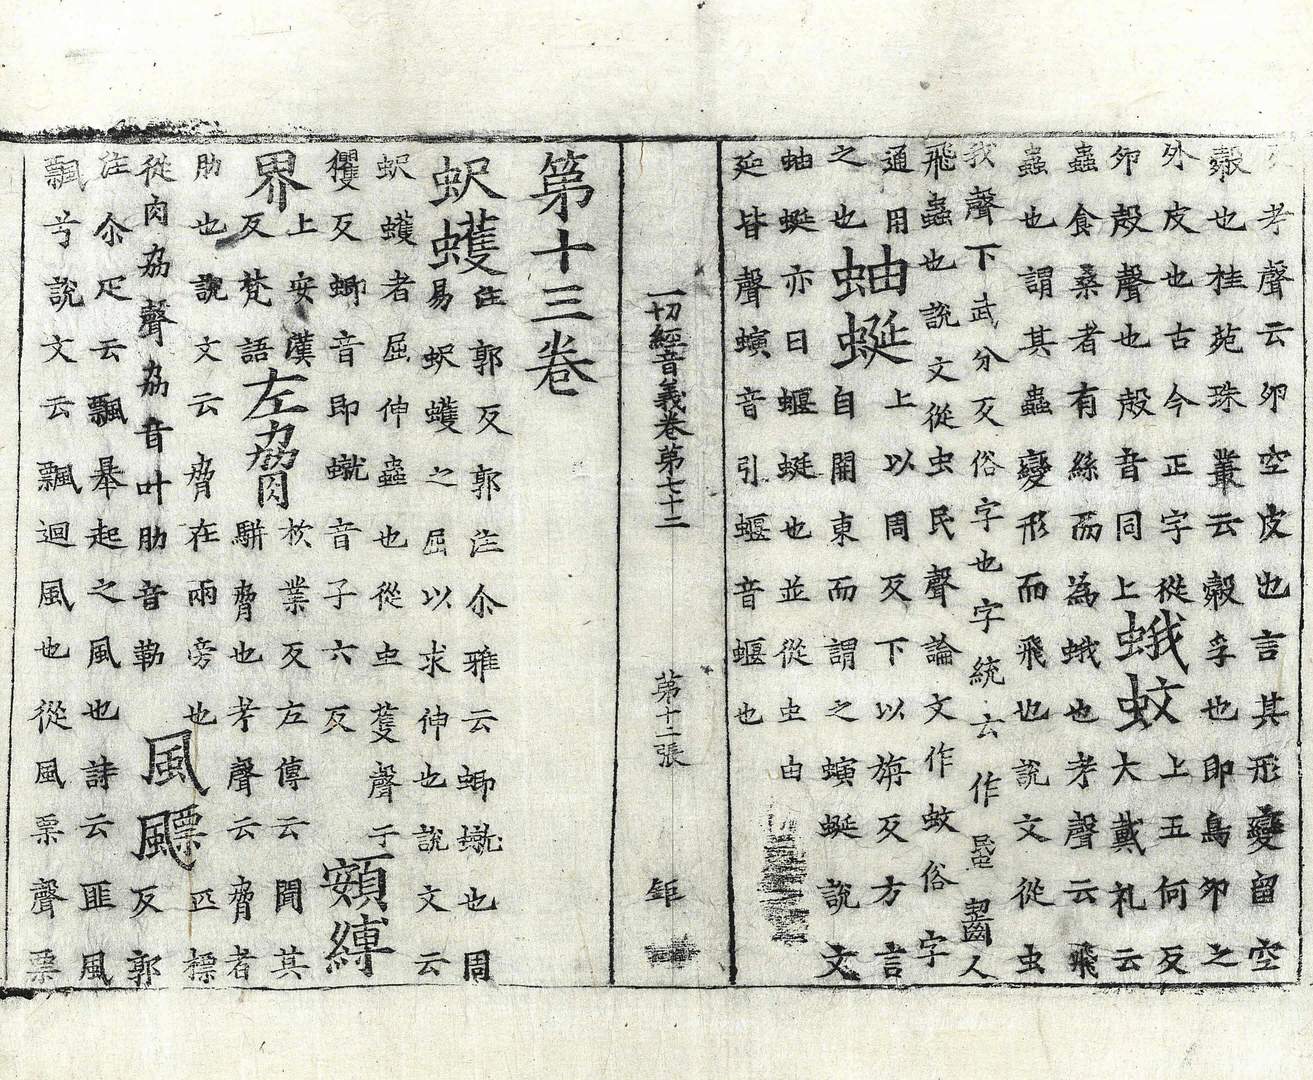 孝聲云卵空皮也言其形變留空
㲉也桂苑珠叢云㲉孚也即鳥卵之
外皮也古今正字從卵㱿聲也㱿音同上
蛾蚊
上五何反大戴礼云
蟲食桑者有絲而為蛾也考聲云飛
蟲也謂其蟲變形而飛也説文從虫
我聲下武分反俗字也字統云作䘇齧人
飛蟲也説文從虫民聲論文作蚊俗字
通用
蚰蜒
上以周反下以旃反方言
之也自關東而謂之螾蜒説文
蚰蜒亦曰蝘蜓也並從虫由
延皆聲螾音引蝘音蝘也
一切經音義卷第七十二
第十二張
鉅
第十三卷
蚇蠖
注易郭反郭注尒雅云蝍䗥也周
易蚇蠖之屈以求伸也説文云
蚇蠖者屈伸蟲也從虫蒦聲
玃反蝍音即䗥音子六反
頞縛
上安漢反梵語
左脅
杴業反左傳云聞其
駢脅也考聲云脅者
肋也説文云脅在兩旁也
從肉劦聲劦音叶肋音勒
風飃
匹標反郭
注尒疋云飄舉起之風也詩云匪風
飄兮説文云飄迴風也從風票聲票